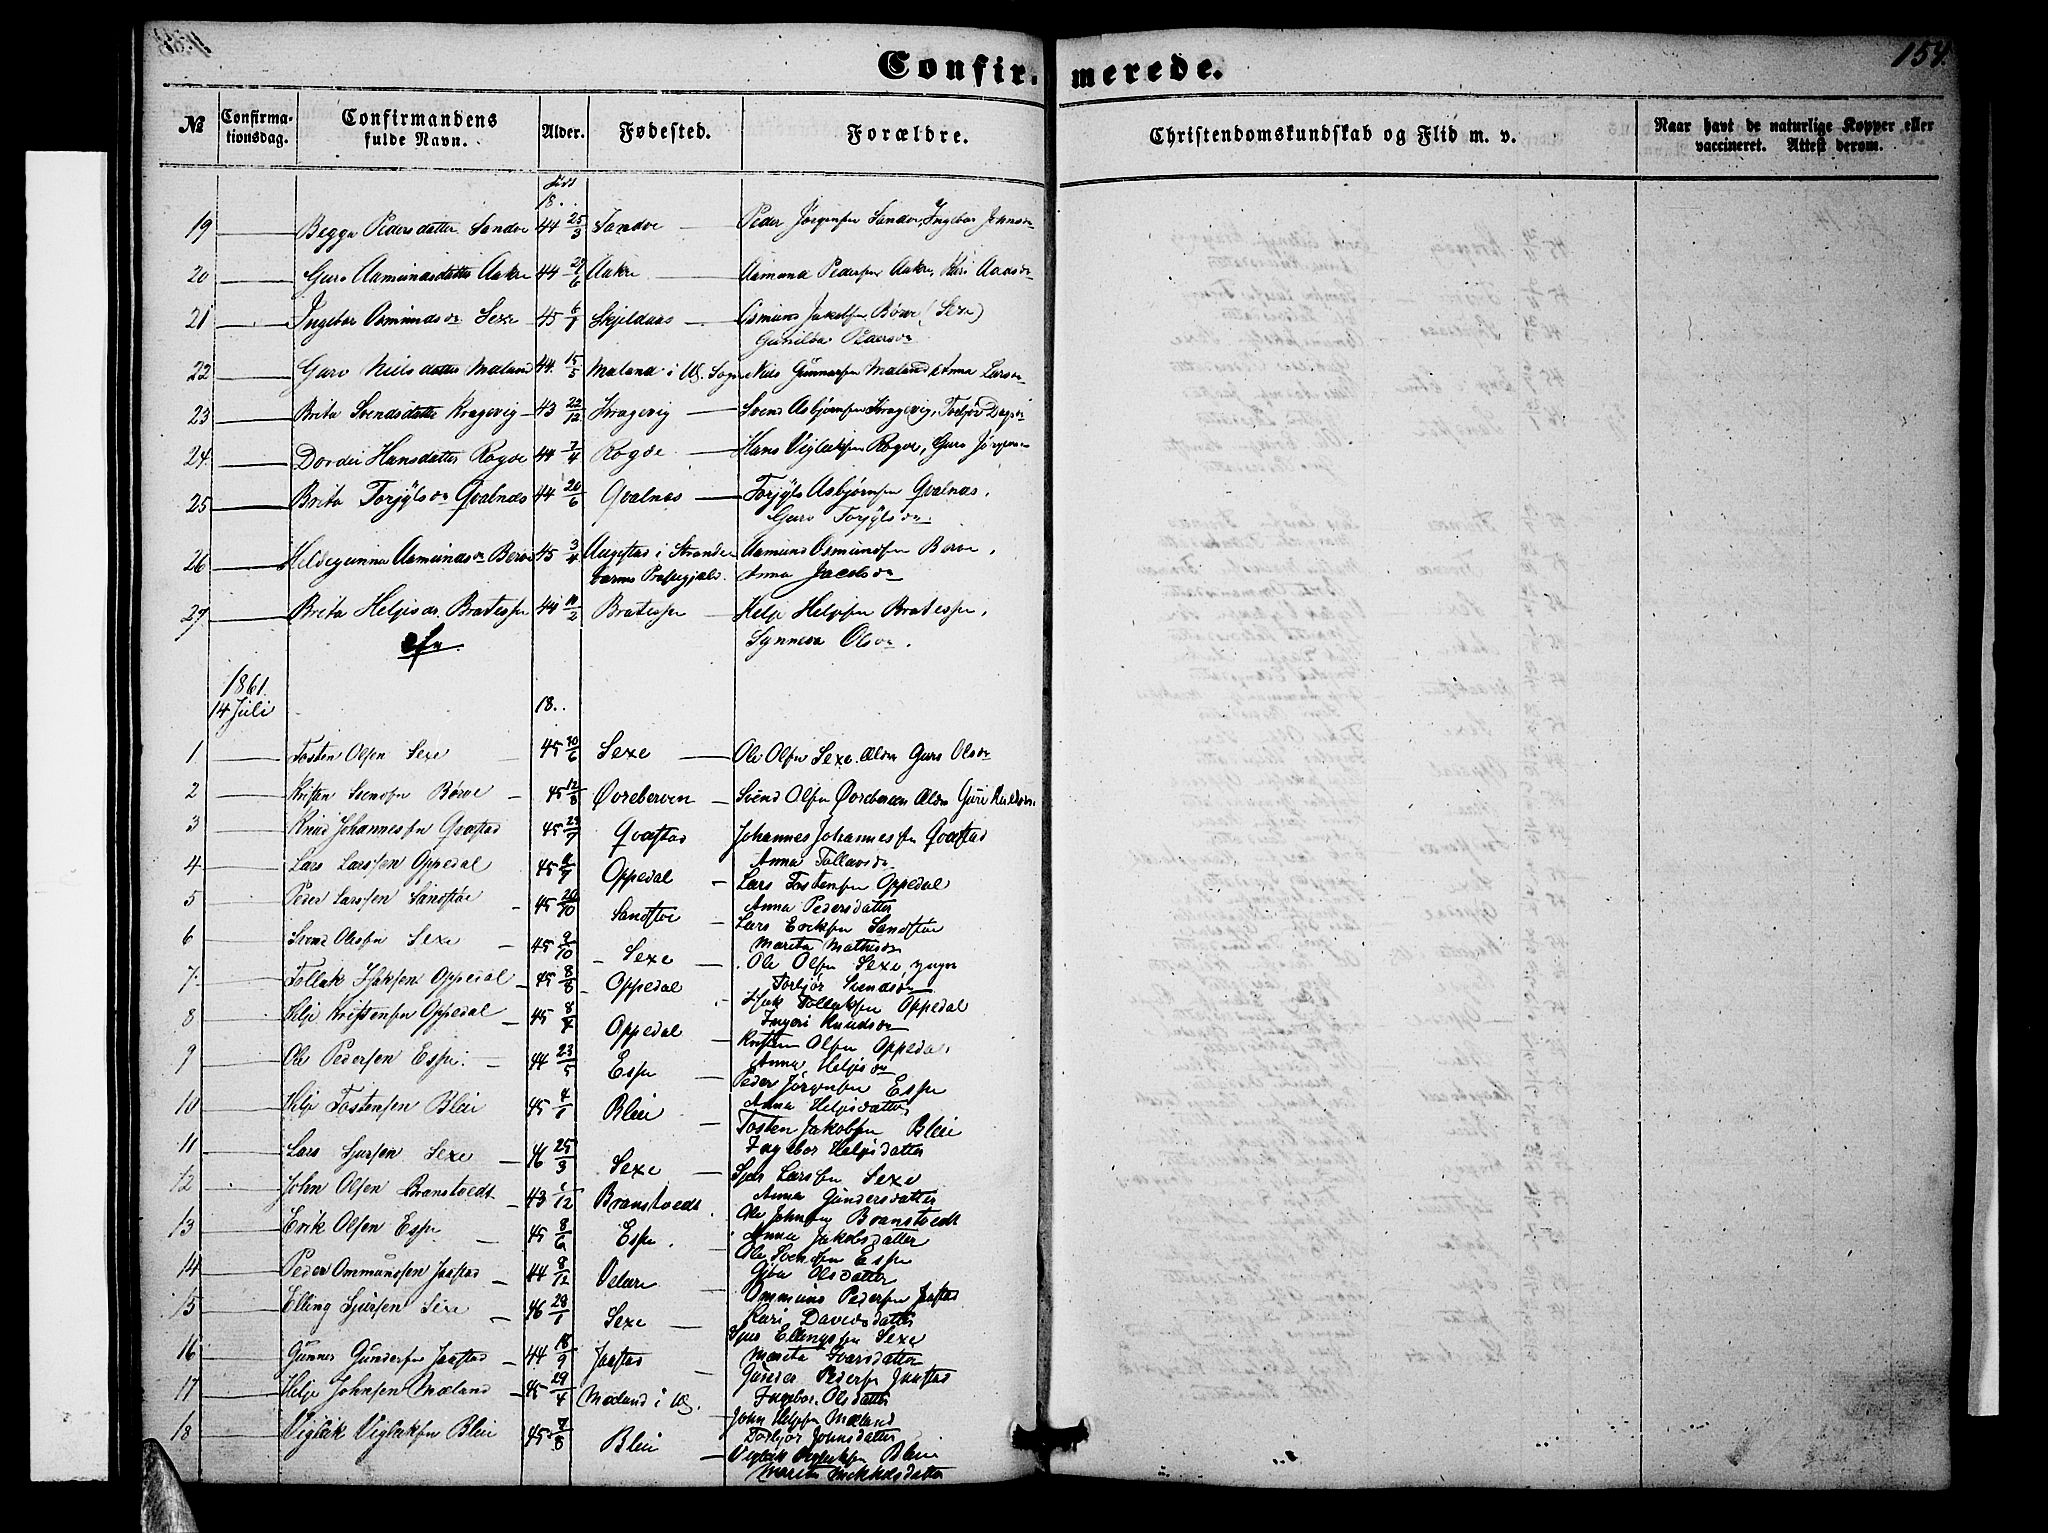 154.
Confirmerede.
№ Confirmationsdag. Confirmandens fulde Navn. Alder. Fødested. Forældre. Christendomskundskab og Flid m. v. Naar havt de naturlige Kopper eller vaccineret. Attest derom.
18..
19 Begga Pedersdatter Sandve 44 25/3 Sandve Peder Jørgensen Sandve, Ingebor Johnsdr
20 Guro Aamundsdatter Aakre 44 29/6 Aakre Aamund Pedersen Aakre, Kari
21 Ingebor Osmundsdr Sexe 45 6/1 Skjeldaas Osmund Jakobsen Børve (Sexe)
Gunilda Pedersdr
22 Guro Nilsdatter Mæland 44 15/5 Mæland i Ul. Sogn Nils Gunnarsen Mæland & Anna Larsdr
23 Brita Svendsdatter Kragevig 43 22/12 Kragevig Svend Asbjørnsen Kragevig, Torbjør Dagsdr
24 Dordei Hansdatter Rogde 44 7/4 Rogde Hans Viglaksen Rogde, Guro Jørgensdr
25 Brita Torjylsdr Qvalnæs 44 20/6 Qvalnæs Torjyls Asbjørnsen Qvalnæs,
Guro Torjylsdr.
26 Hildegunna Aamundsdr Berve 45 3/4 Augestad i Strandebarms Præstegjæld. Aamund Osmundsen Berve,
Anna Jacobsdr
27 Brita Helgesdr Bratespe 44 11/2 Bratespe Helje Heljesen Bratespe,
Synneva Olsdr.
1861.
14 Juli 18..
1 Tosten Olsen Sexe 45 30/6 Sexe Ole Olsen Sexe Ældre Guro Olsdr
2 Kristen Svendsen Børve 45 12/8 Øvreberven Svend Olsen Øvreberven Ældre Guri Knudsdr.
3 Knud Johannessen Qvæstad 45 23/7 Qvæstad Johannes Johannessen Qvæstad
Anna Tollavsdr
4 Lars Larssen Oppedal 45 8/7 Oppedal Lars Tostensen Oppedal
Anna Pedersdatter
5 Peder Larssen Sandstøe 45 20/10 Sandstøe Lars Eriksen Sandstøe
Marita Mathisdr
6 Svend Olesen Sexe 45 9/10 Sexe Ole Olsen Sexe, yngre
Torbjør Svendsdr
7 Tollak Isaksen Oppedal 45 8/8 Oppedal Isak Tollaksen Oppedal
Ingeri Knudsdr
8 Helje Kristensen Oppedal 45 8/4 Oppedal Kristen Olsen Oppedal
Anna Heljesdr
9 Ole Pedersen Espe 44 23/5 Espe Peder Jørgensen Espe
Anna Heljesdatter
10 Helje Tostensen Bleie 45 4/1 Bleie Tosten Jakobsen Bleie
Ingebor Heljesdatter
11 Lars Sjursen Sexe 46 25/3 Sexe Sjur Larssen Sexe
Anna Gundersdatter
12 John Olsen Branstvedt 43 /12 Branstvedt Ole Johnsen Branstvedt
Anna Jakobsdatter
13 Erik Olsen Espe 45 8/6 Espe Ole Svendsen Espe
Gjøa Olsdatter
14 Peder Ommundsen Jaastad 44 8/12 Velure Ommund Pedersen Jaastad
Kari Davidsdatter
15 Elling Sjursen Sexe 46 28/1 Sexe Sjur Ellingsen Sexe
Marita Ivarsdatter
16 Gunner Gundersen Jaastad 44 18/9 Jaastad Gunder Pedersen Jaastad
Ingebor Olsdatter
17 Helje Johnsen Mæland 45 29/4 Mæland i Ul. John Heljesen Mæland
Torbjør Johnsdatter
18 Viglak Viglaksen Bleie 45 7/8 Bleie Viglak Viglaksen Bleie
Marita Mikkelsdatter